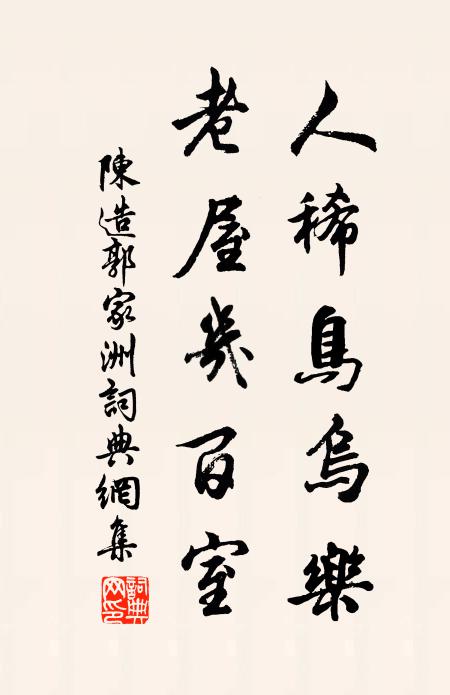 人稀鳥烏樂
老屋幾百室
陳造郭家洲詞典網集
詞典網印